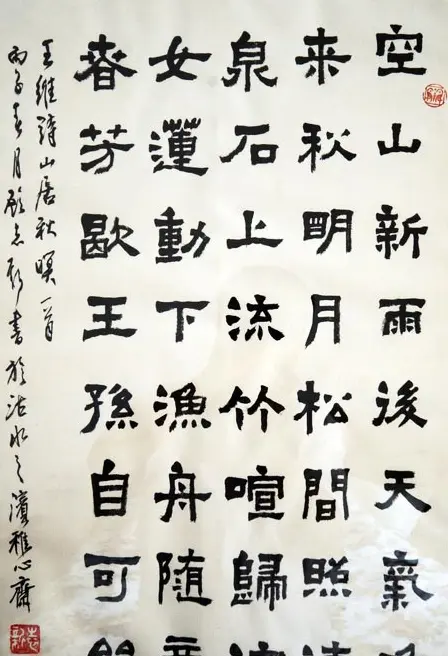 空山新雨後天氣
来秋明月松間照
泉石上流竹喧歸
女蓮動下漁舟随
春芳歇王孫自可
王維詩山居秋暝一首
丙子春月顧志新書於沽水之濱雅心齋
志新